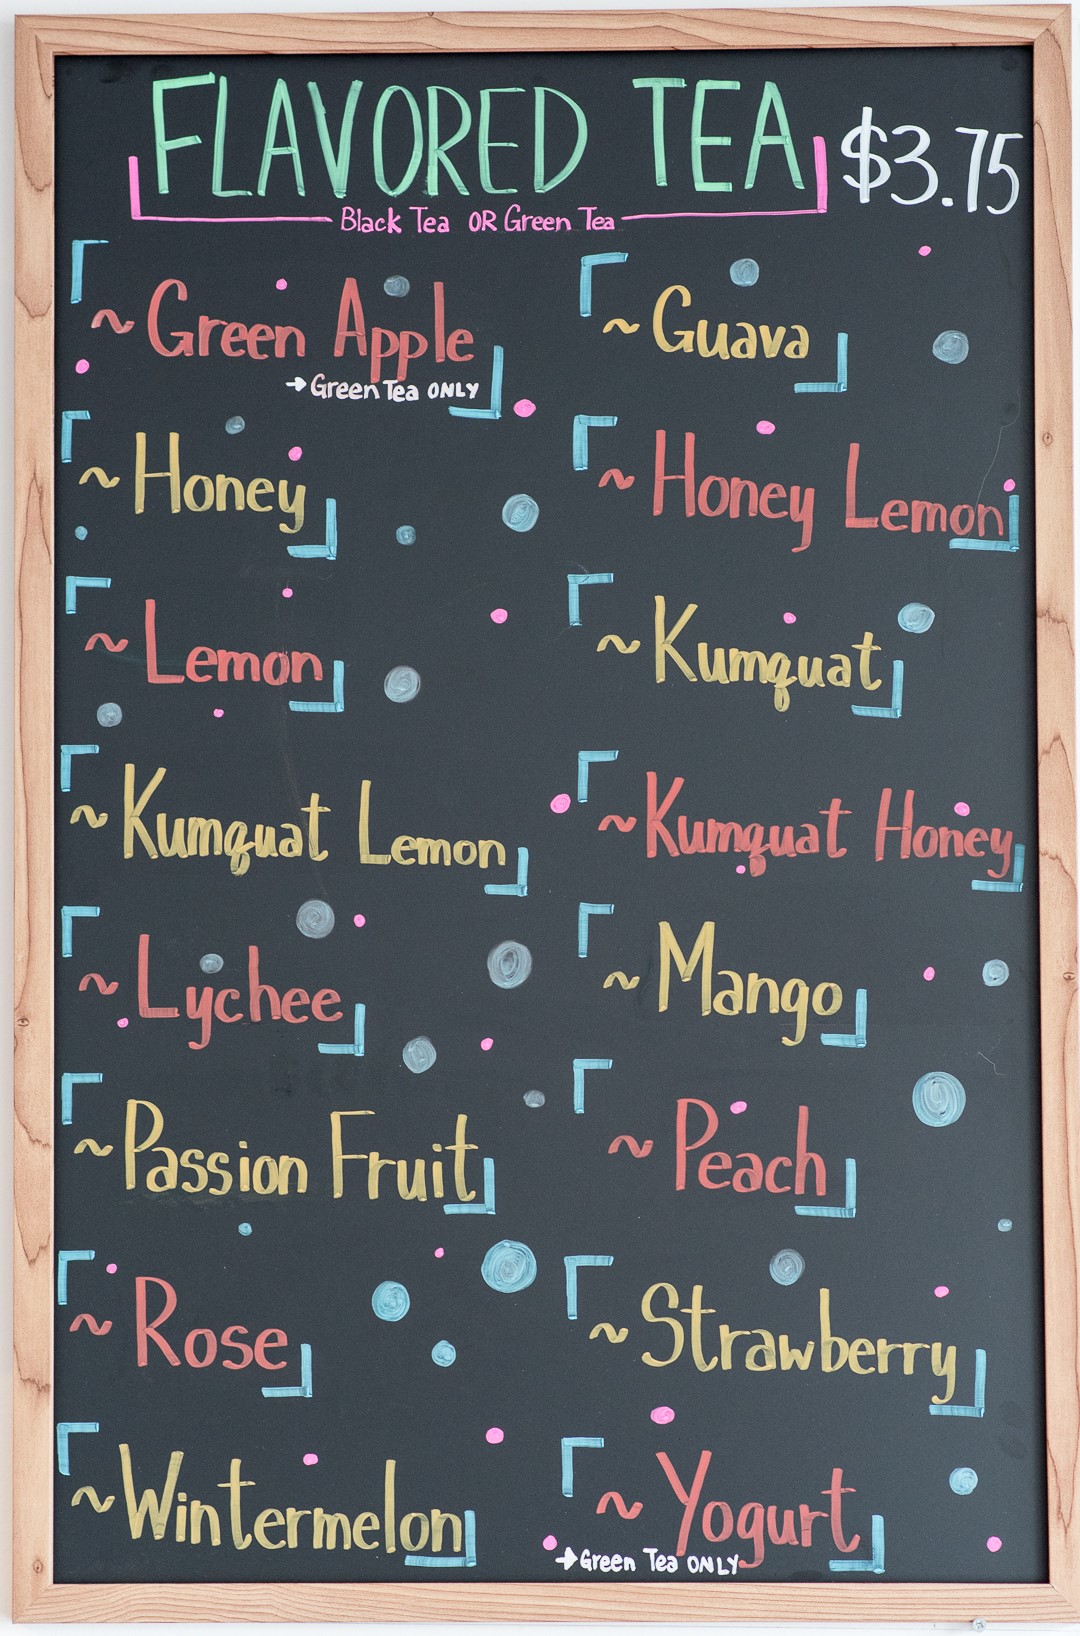 FLAVORED TEA $3.75
Black Tea OR Green Tea
~Green Apple
→Green Tea ONLY
~Guava
~Honey
~Honey Lemon
~Lemon
~Kumquat
~Kumquat Lemon
~Kumquat Honey
~Lychee
~Mango
~Passion Fruit
~Peach
~Rose
~Strawberry
~Wintermelon
~Yogurt
→Green Tea ONLY